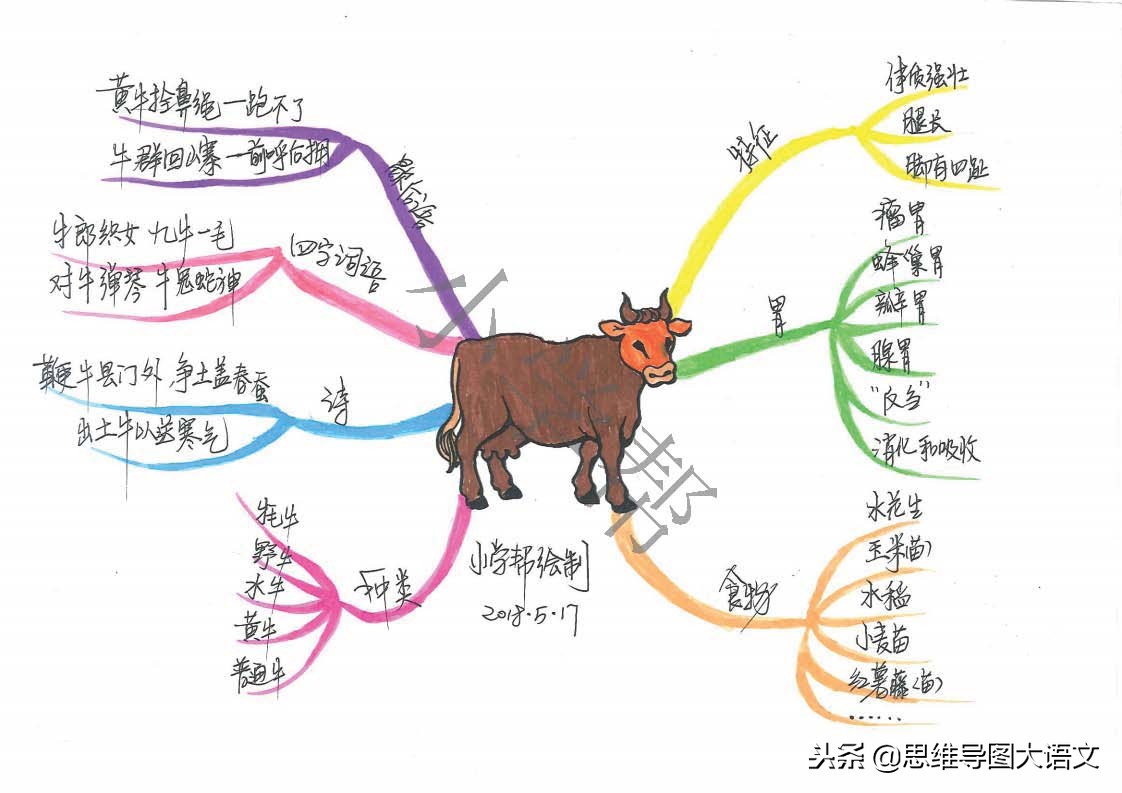 黄牛拴鼻绳 一跑不了
牛群回山寨 一前呼后拥
歇后语
牛郎织女 九牛一毛
对牛弹琴 牛鬼蛇神
四字词语
鞭牛县门外 争土盖春蚕
出土牛以送寒气
诗
牦牛
野牛
水牛
黄牛
普通牛
种类
特征
体质强壮
腿长
脚有四趾
胃
瘤胃
蜂巢胃
瓣胃
腺胃
“反刍”
消化和吸收
食物
水花生
玉米(苗)
水稻
小麦苗
红薯藤(苗)
......
小学帮绘制
2018.5.17
小学帮
头条@思维导图大语文